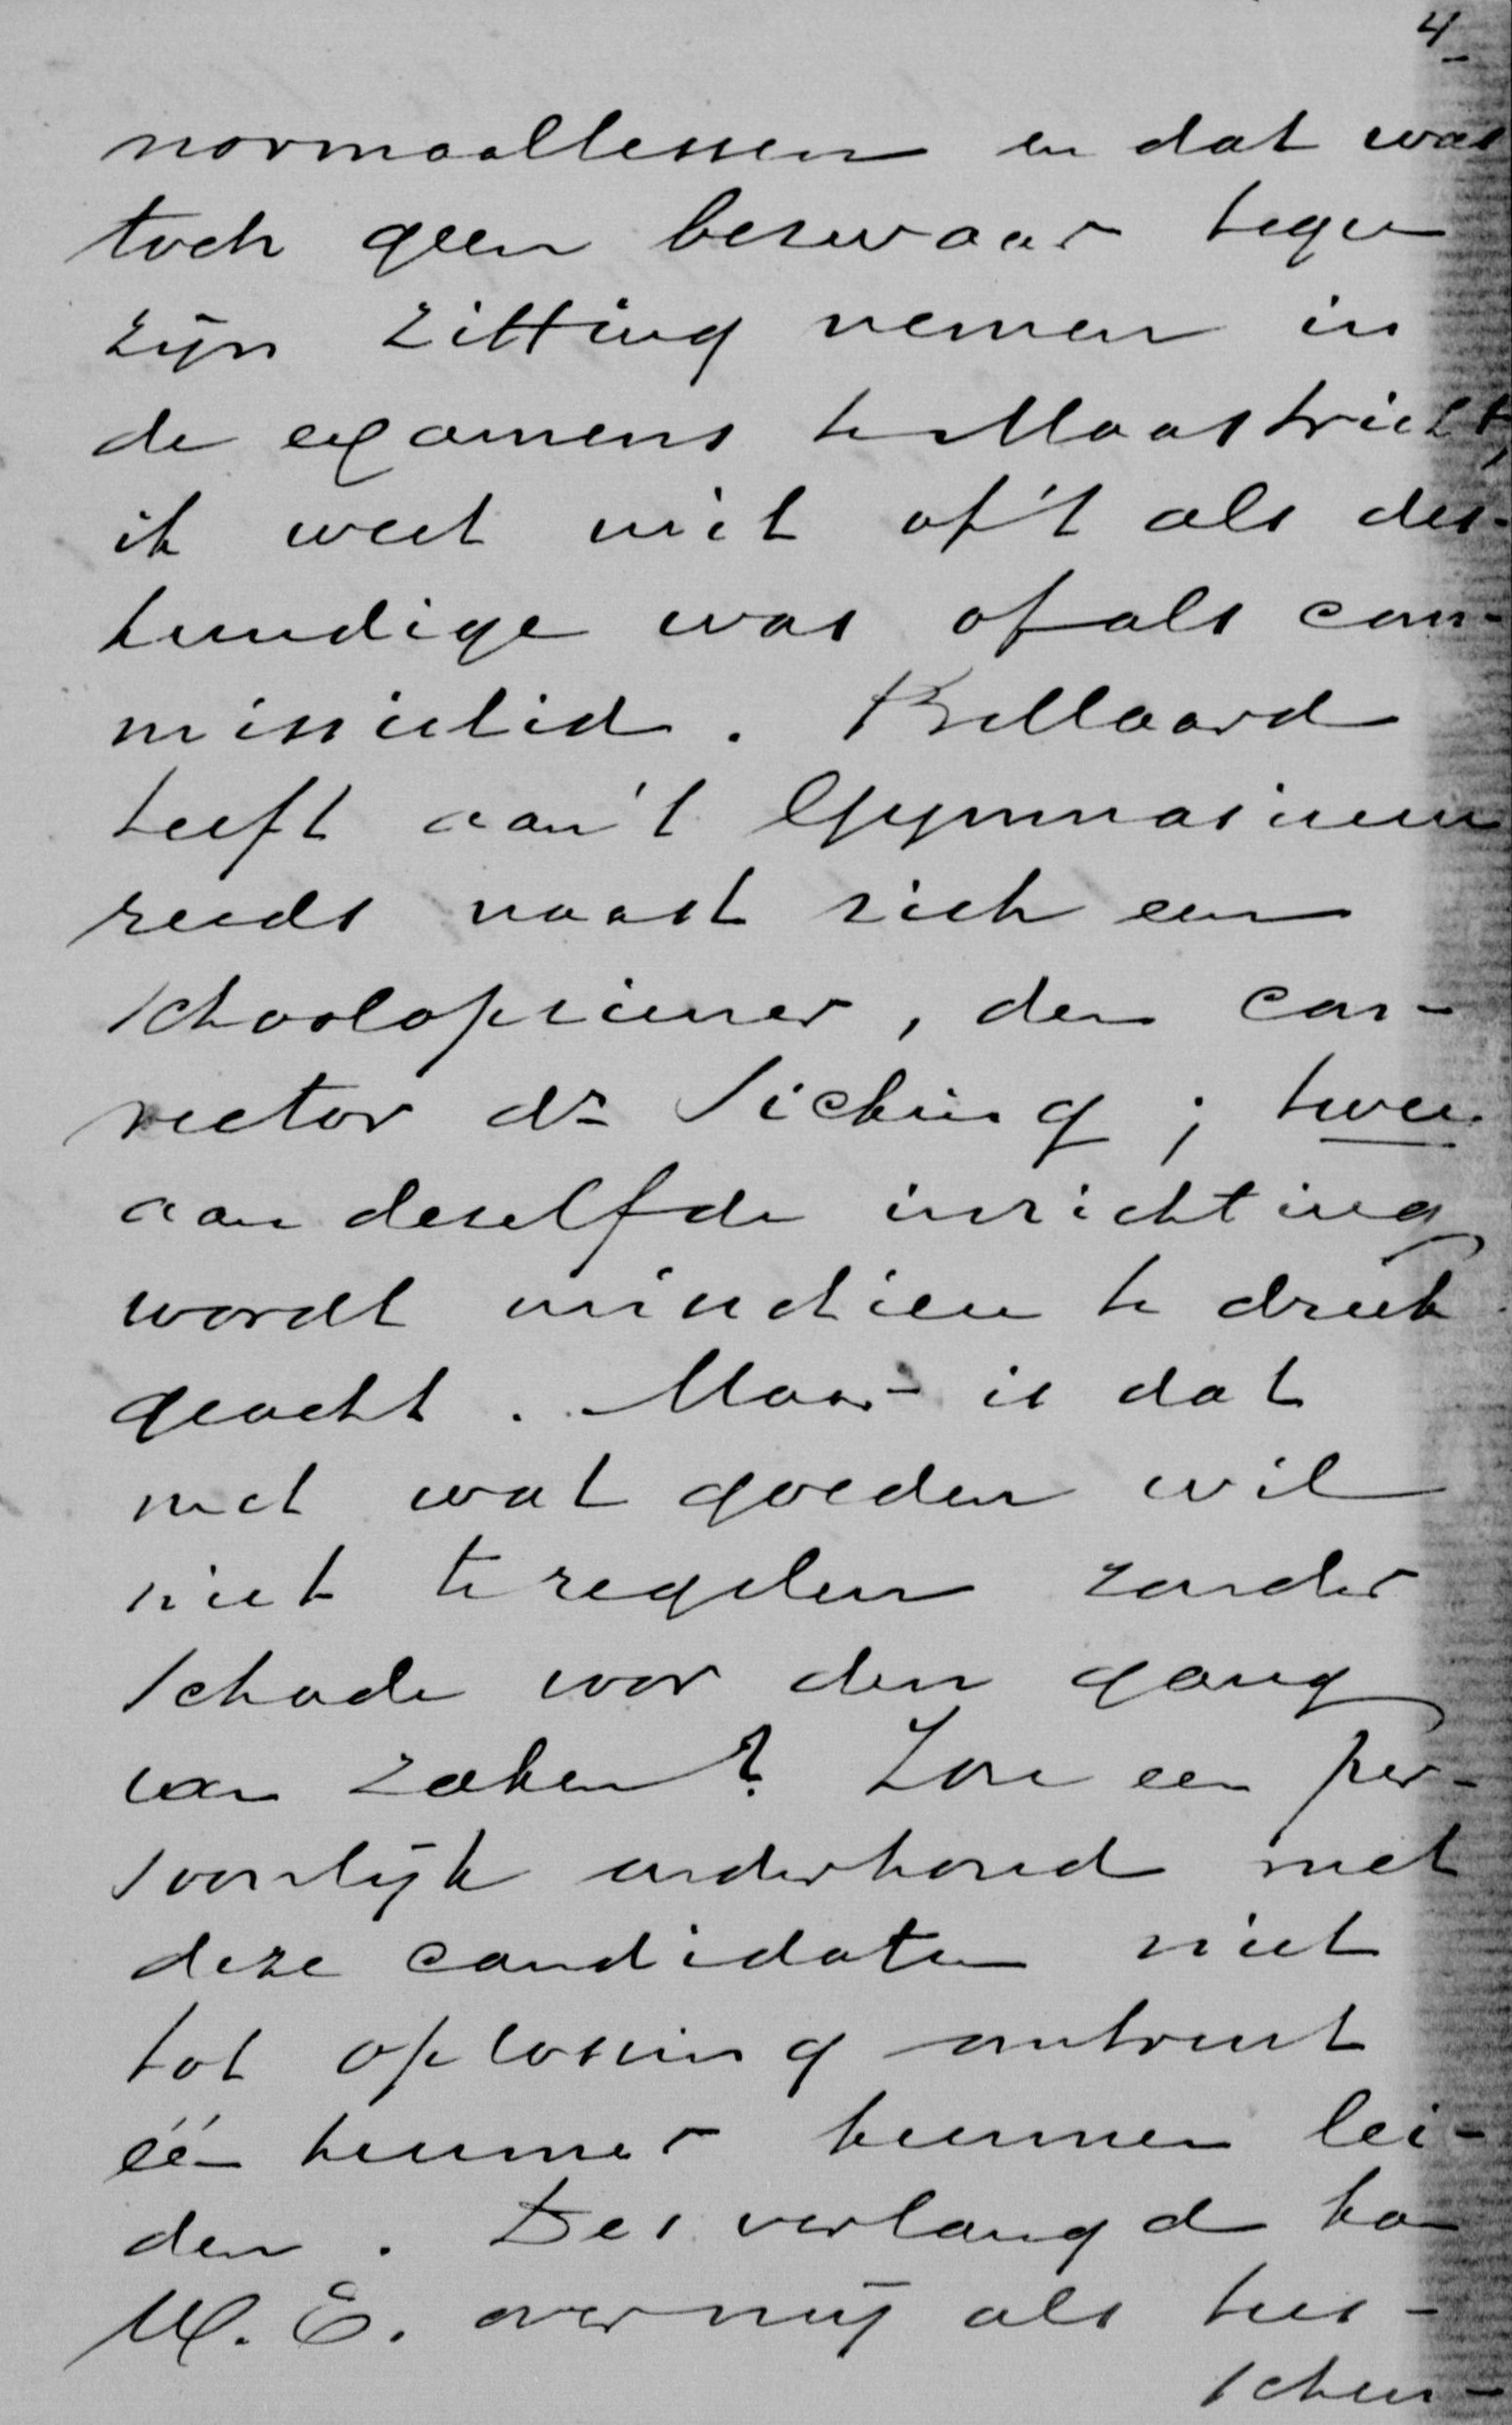 4
normaallessen en dat was
toch geen bezwaar tegen
zijn zitting nemen in
de examens te Maastricht,
ik weet niet of 't als des-
kundige was of als com-
missielid. Bellaard
heeft aan 't Gymnasium
reeds naast zich een
schoolopziener, den con-
rector dr Sicking; twee
aan dezelfde inrichting
wordt misschien te druk
geacht. Maar is dat
met wat goeden wil
niet te regelen zonder
schade voor den gang
van zaken? Zou een per-
soonlijk onderhoud met
deze candidaten niet
tot oplossing omtrent
één hunner kunnen lei-
den. Des verlangd kan
U.E. over mij als tus-
schen-